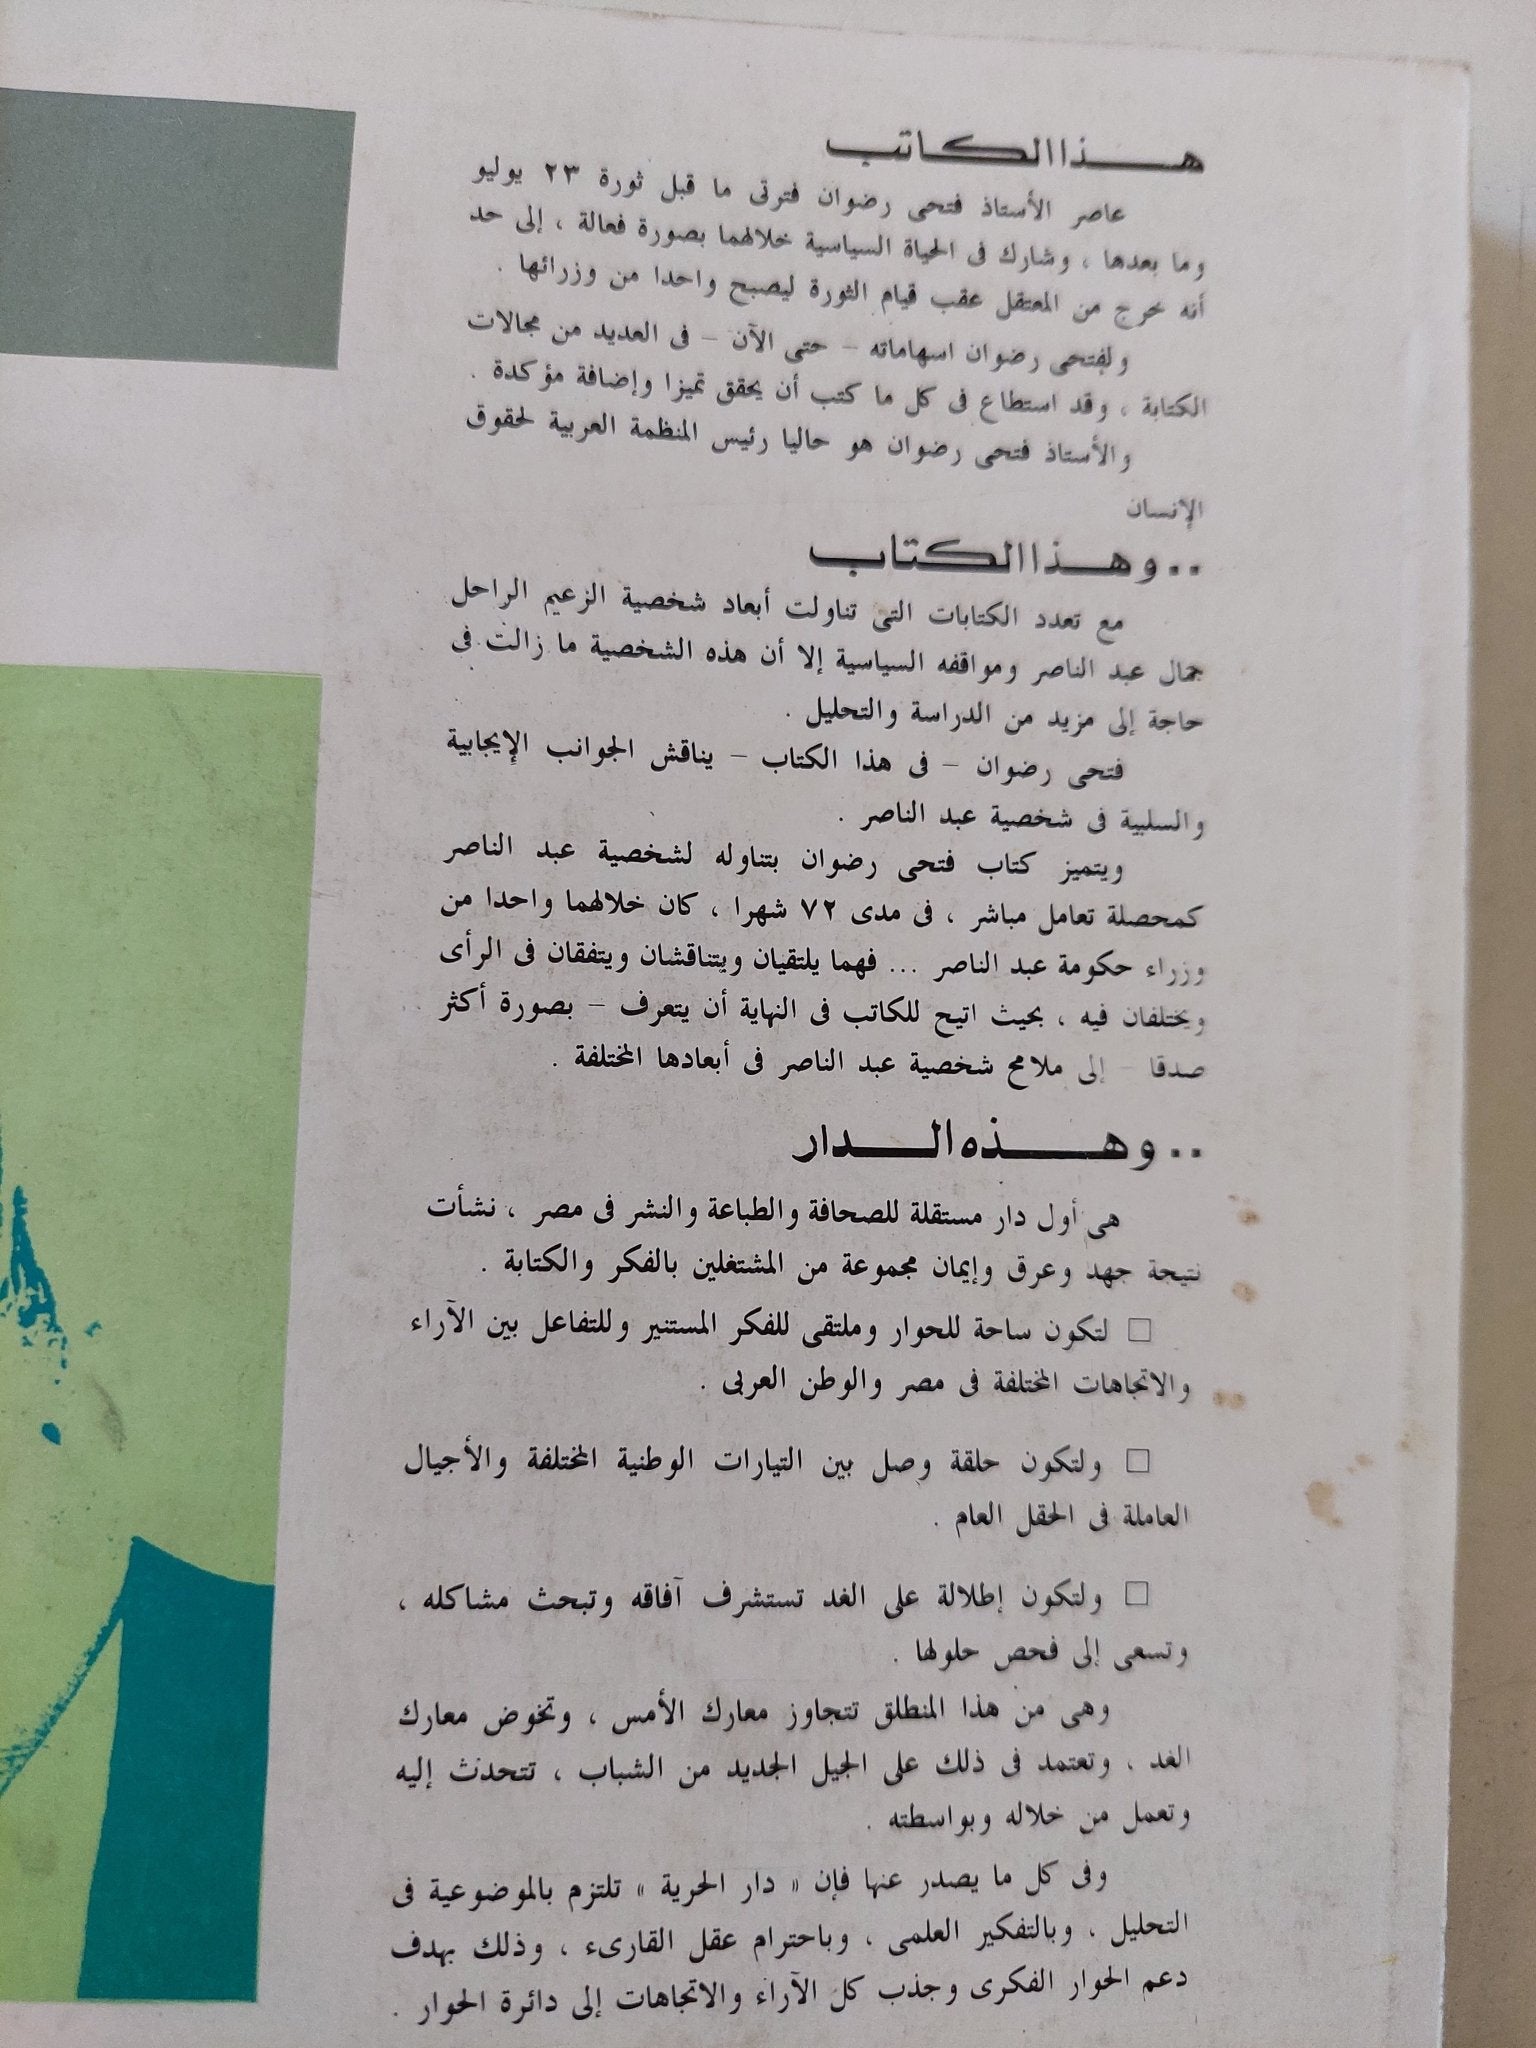 هذا الكاتب
عاصر الأستاذ فتحى رضوان فترتى ما قبل ثورة ٢٣ يوليو
وما بعدها ، وشارك فى الحياة السياسية خلالهما بصورة فعالة ، إلى حد
أنه خرج من المعتقل عقب قيام الثورة ليصبح واحدا من وزرائها .
ولفتحى رضوان اسهاماته – حتى الآن – فى العديد من مجالات
الكتابة ، وقد استطاع فى كل ما كتب أن يحقق تميزا وإضافة مؤكدة .
والأستاذ فتحى رضوان هو حاليا رئيس المنظمة العربية لحقوق
الإنسان
.. وهذا الكتاب
مع تعدد الكتابات التى تناولت أبعاد شخصية الزعيم الراحل
جمال عبد الناصر ومواقفه السياسية إلا أن هذه الشخصية ما زالت فى
حاجة إلى مزيد من الدراسة والتحليل .
فتحى رضوان – فى هذا الكتاب – يناقش الجوانب الإيجابية
والسلبية فى شخصية عبد الناصر .
ويتميز كتاب فتحى رضوان بتناوله لشخصية عبد الناصر
كمحصلة تعامل مباشر ، فى مدى ٧٢ شهرا ، كان خلالهما واحدا من
وزراء حكومة عبد الناصر ... فهما يلتقيان ويتناقشان ويتفقان فى الرأى
ويختلفان فيه ، بحيث اتيح للكاتب فى النهاية أن يتعرف – بصورة أكثر
صدقا – إلى ملامح شخصية عبد الناصر فى أبعادها المختلفة .
.. وهذه الدار
هى أول دار مستقلة للصحافة والطباعة والنشر فى مصر ، نشأت
نتيجة جهد وعرق وإيمان مجموعة من المشتغلين بالفكر والكتابة .
□ لتكون ساحة للحوار وملتقى للفكر المستنير وللتفاعل بين الآراء
والاتجاهات المختلفة فى مصر والوطن العربى .
□ ولتكون حلقة وصل بين التيارات الوطنية المختلفة والأجيال
العاملة فى الحقل العام .
□ ولتكون إطلالة على الغد تستشرف آفاقه وتبحث مشاكله ،
وتسعى إلى فحص حلولها .
وهى من هذا المنطلق تتجاوز معارك الأمس ، وتخوض معارك
الغد ، وتعتمد فى ذلك على الجيل الجديد من الشباب ، تتحدث إليه
وتعمل من خلاله وبواسطته .
وفى كل ما يصدر عنها فإن « دار الحرية » تلتزم بالموضوعية فى
التحليل ، وبالتفكير العلمى ، وباحترام عقل القارىء ، وذلك بهدف
دعم الحوار الفكرى وجذب كل الآراء والاتجاهات إلى دائرة الحوار .